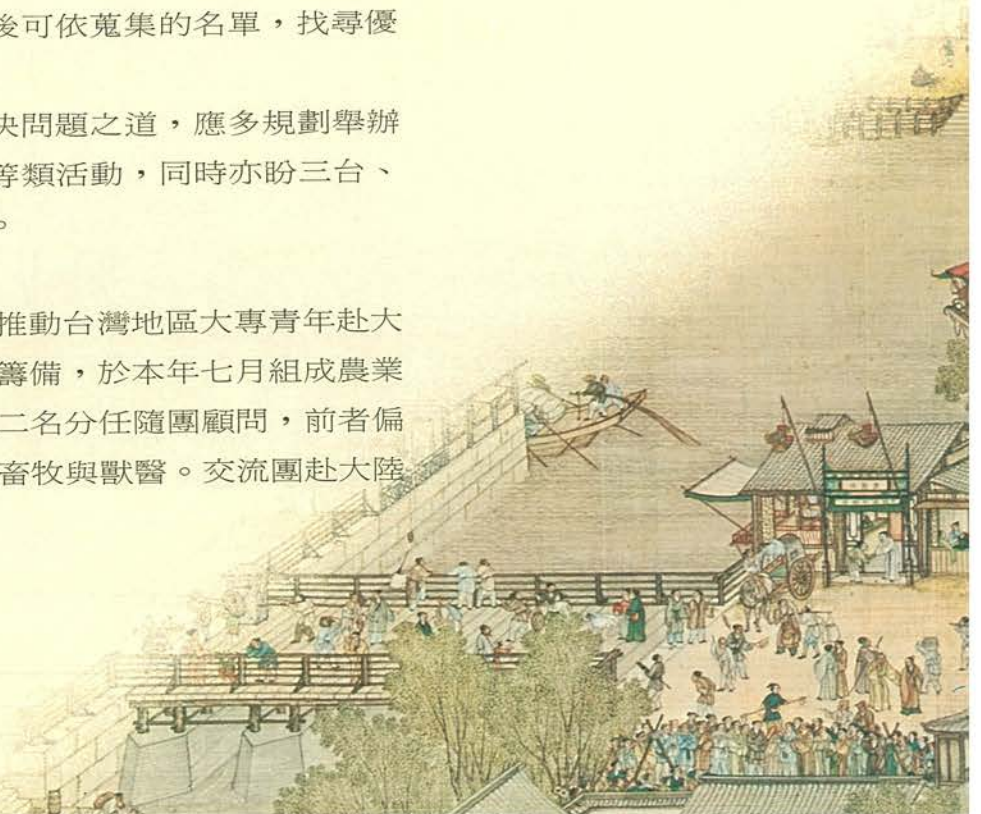 後可依蒐集的名單，找尋優
決問題之道，應多規劃舉辦
等類活動，同時亦盼三台、
。
推動台灣地區大專青年赴大
籌備，於本年七月組成農業
二名分任隨團顧問，前者偏
畜牧與獸醫。交流團赴大陸